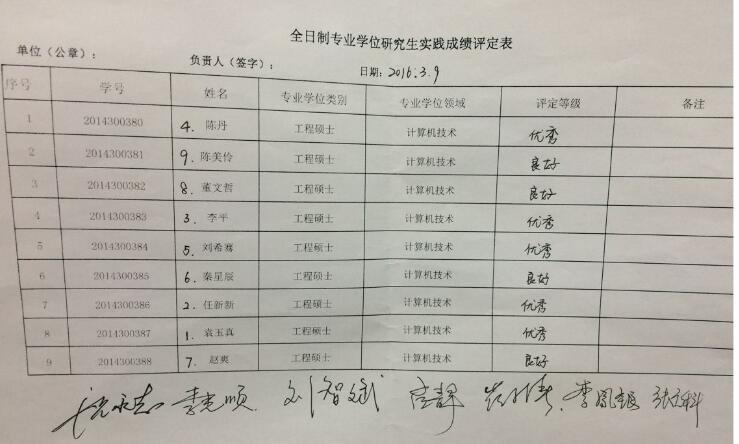 全日制专业学位研究生实践成绩评定表
单位（公章）： 负责人（签字）： 日期：2016.3.9
序号 学号 姓名 专业学位类别 专业学位领域 评定等级 备注
1 2014300380 4. 陈丹 工程硕士 计算机技术 优秀
2 2014300381 9. 陈美伶 工程硕士 计算机技术 良好
3 2014300382 8. 董文哲 工程硕士 计算机技术 良好
4 2014300383 3. 李平 工程硕士 计算机技术 优秀
5 2014300384 5. 刘希骞 工程硕士 计算机技术 优秀
6 2014300385 6. 秦星辰 工程硕士 计算机技术 良好
7 2014300386 2. 任新新 工程硕士 计算机技术 优秀
8 2014300387 1. 袁玉真 工程硕士 计算机技术 优秀
9 2014300388 7. 赵爽 工程硕士 计算机技术 良好
李克顺 刘智斌